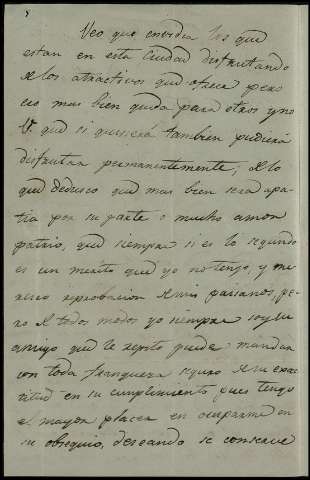 Veo que envidia los que
estan en esta Ciudad disfrutando
de los atractivos que ofrece pero
eso mas bien queda para otros y no
V. que si quisiera tambien pudiera
disfrutar permanentemente; de lo
que dedusco que mas bien sera apa-
tia por su parte o mucho amor
patrio, que siempre si es lo segundo
es un merito que yo no tengo, y me-
resco reprobacion de mis paisanos, pe-
ro de todos modos yo siempre soy su
amigo que le repito puede mandar
con toda franqueza seguro de mi exac-
titud en su cumplimiento pues tengo
el mayor placer en ocuparme en
su obsequio, deseando se conserve